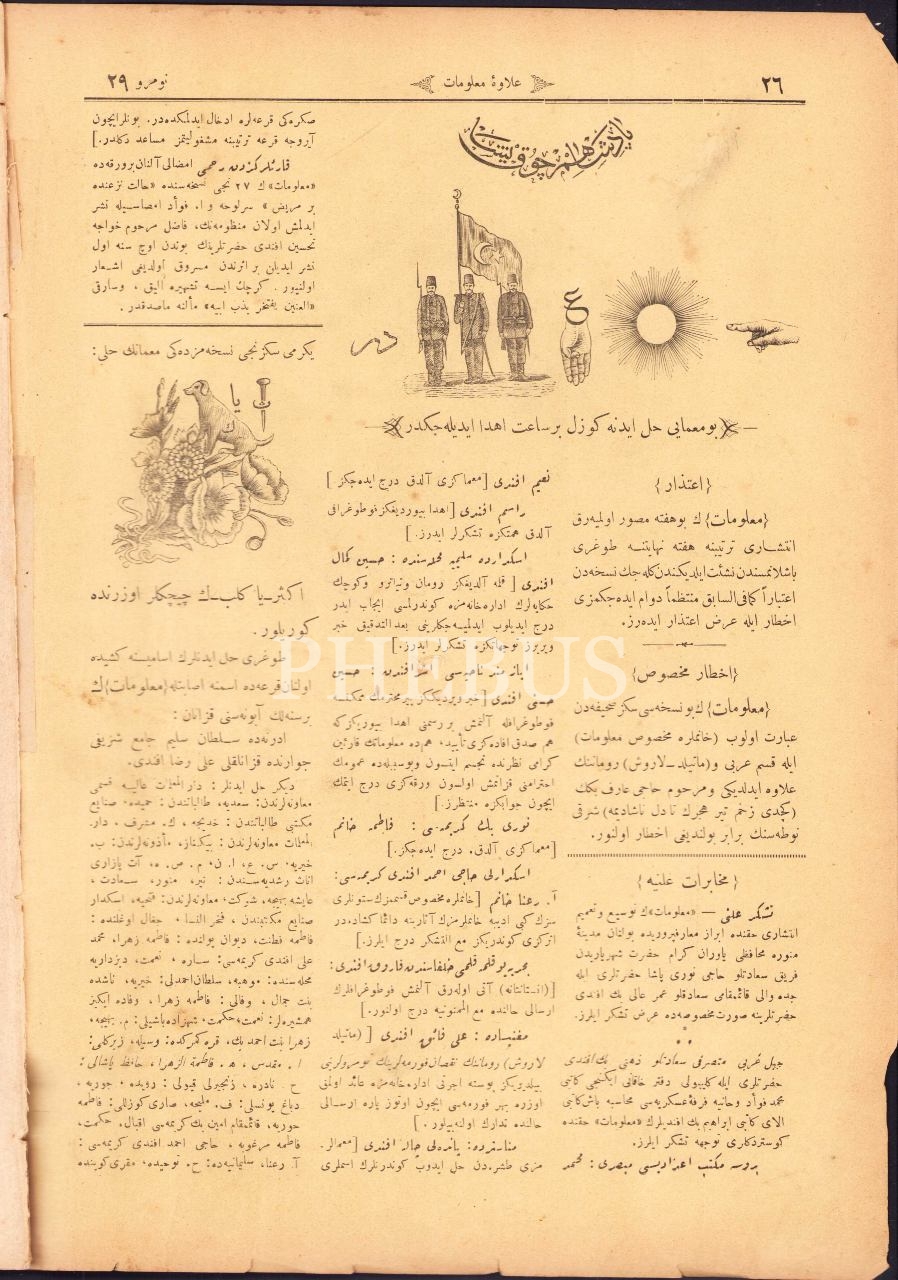 ٢٦
علاوۀ معلومات
نومرو ٢٩
پادشاهم چوق یشا
ع
در
بو معمایی حل ایدنه كوزل بر ساعت اهدا ایدیله جكدر
{اعتذار}
{معلومات}ك بو هفته مصور اولمیه رق
انتشاری ترتیبنه هفته نهایتنه طوغری
باشلانمسندن نشئت ایلدیكندن كله جك نسخه دن
اعتباراً كمافی السابق منتظماً دوام ایده جكمزی
اخطار ایله عرض اعتذار ایده رز.
{اخطار مخصوص}
{معلومات}ك بو نسخه سی سكز صحیفه دن
عبارت اولوب (خانملره مخصوص معلومات)
ایله قسم عربی و (ماتیلد ـ لاروش) رومانك
علاوه ایدلدیكی و مرحوم حاجی عارف بكك
شرقی
نوطه سنك برابر بولندیغی اخطار اولنور.
{مخابرات علنیه}
تشكر علنی — «معلومات»ك توسیع و تعمیم
انتشاری حقنده ابراز معارفپروریده بولنان مدینۀ
منوره محافظی یاوران كرام حضرت شهریاریدن
فریق سعادتلو حاجی نوری پاشا حضرتلری ایله
جده والی قائمقامی سعادتلو عمر عالی بك افندی
حضرتلرینه صورت مخصوصه ده عرض تشكر ایلرز.
جبل غربی متصرفی سعادتلو ذهنی بك افندی
حضرتلری ایله كلیبولی دفتر خاقانی ایكنجی كاتبی
محمد فؤاد و حانیه فرقۀ عسكریه سی محاسبه باش كاتبی
الای كاتبی ابراهیم بك افندیلرك «معلومات» حقنده
كوستردكاری توجهه تشكر ایلرز.
بروسه مكتب اعدادیسی مبصری : محمد
نعیم افندی [معماكزی آلدق درج ایده جكز]
راسم افندی [اهدا بیوردیغكز فوطوغرافی
آلدق همتكزه تشكرلر ایدرز.]
اسكدارده سلیمیه محله سنده : حسین كمال
افندی [قلمه آلدیغكز رومان و تیاترو و كوچك
حكایه لرك اداره خانه مزه كوندرلمسی ایجاب ایدر
درج ایدیلوب ایدلمیه جكلرینی بعد التدقیق خبر
ویریرز توجهاتكزه تشكرلر ایدرز.]
حسین
حسنی افندی [خبر ویردیككز پیر محترمك ممكنسه
فوطوغرافله آلنمش بر رسمنی اهدا بیوریكز كه
هم صدق افاده كزی تأیید، هم ده معلوماتك قارئین
كرامی نظرنده تجسم ایتسون و بوسبیله ده عمومك
احترامنی قزانمش اولسون ورقه كزی درج ایتمك
ایچون جوابكزه منتظرز.]
نوری بك كریمه سی : فاطمه خانم
[معماكزی آلدق. درج ایده جكز.]
اسكدارلی حاجی احمد افندی كریمه سی :
آ. رعنا خانم [خانملره مخصوص قسممزك ستونلری
سزك كبی ادیبه خانملرمزك آثارینه دائما كشاده در
اثركزی كوندریكز مع التشكر درج ایلرز.]
بحریه یوقلمه قلمی خلفاسندن فاروق افندی :
[(انستانتانه) آنی اوله رق آلنمش فوطوغرافلرك
ارسالی حالنده مع الممنونیه درج اولنور.]
مغنیساده : علی فائق افندی [(ماتیلد
لاروش) رومانك نقصان فورمه لرینك نومرولرینی
بیلدیریكز پوسته اجرتی اداره خانه مزه عائد اولمق
اوزره بهر فورمه سی ایچون اوتوز پاره ارسالی
حالنده تدارك اولنه بیلور.]
مناستردہ : یانیه لی جلال افندی [معمالر
مزی طشره دن حل ایدوب كوندرنلرك اسملری
صكره كی قرعه لره ادخال ایدلمكده در. بونلر ایچون
آیروجه قرعه ترتیبنه مشغولیتمز مساعد دكلدر.]
قارئلركزدن رحمی امضالی آلنان بر ورقه ده
«معلومات»ك ٢٧ نجی نسخه سنده «حالت نزعنده
بر مریض» سرلوحه و ا. فؤاد امضاسیله نشر
ایدلمش اولان منظومه نك، فاضل مرحوم خواجه
تحسین افندی حضرتلرینك بوندن اوچ سنه اول
نشر ایدیلن بر اثرندن مسروق اولدیغی اشعار
اولنیور. كرچك ایسه تشهیره الیق، و سارقی
«العنین یفتخر بذب ابیه» مألنه ماصدقدر.
یكرمی سكزنجی نسخه مزده كی معمانك حلی :
ث
یا
اكثر ـ یا كلب ـ ك چیچكلر اوزرنده
كوریلور.
طوغری حل ایدنلرك اسامیسنه كشیده
اولنان قرعه ده اسمنه اصابتله {معلومات}ك
بر سنه لك آبونه سنی قزانان :
ادرنه ده سلطان سلیم جامع شریفی
جوارنده قزانلقلی علی رضا افندی.
دیكر حل ایدنلر : دار المعلمات عالیه قسمی
معاونه لرندن : سعدیه، طالباتندن : حمیده، صنایع
مكتبی طالباتندن : خدیجه، ك. مشرف، دار
المعلمات معاونه لرندن : بیكناز، مأذونه لرندن : ب.
خیریه، س. ع، ا. ن، م. ص. ه، آت پازاری
اناث رشدیه سندن : نیر، منور، سعادت،
عایشه بهیجه، شركت، معاونه لرندن : فتحیه، اسكدار
صنایع مكتبندن، فخر النسا، جغال اوغلنده :
فاطمه فطنت، دیوان یولنده : فاطمه زهرا، محمد
علی افندی كریمه سی : ساره، نعمت، دیزداریه
محله سنده : موهبه، سلطان احمدلی : خیریه، ناشده
بنت جمال، وفالی : فاطمه زهرا، وفاده ایكیز
همشیره لر : نعمت، حكمت، شهزاده باشیلی : م. بهیجه،
زهرا بنت احمد بك، قره كمركده : وسیله، زیركلی :
ا. مقدس، ه. فاطمة الزهرا، حافظ پاشالی :
ح. نادره، زنجیرلی قپولی : رویده، حوریه،
دباغ یونسلی : ف. ملیحه، صاری كوزللی : فاطمه
حوریه، قائمقام امین بك كریمه سی اقبال، حكمت،
فاطمه مرغوبه، حاجی احمد افندی كریمه سی :
آ. رعنا، سلیمانیه ده : ح. توحیده، مقری كوینده
PHEBUS